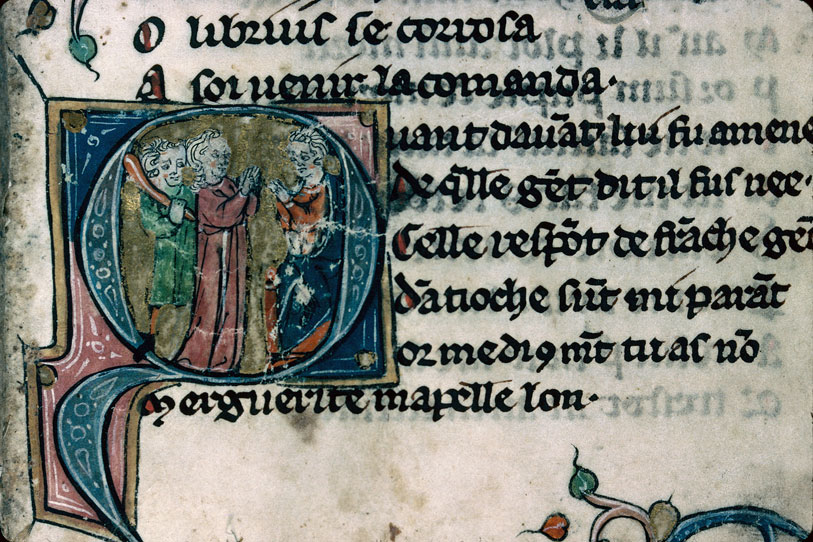 O librius se corrosa
A soi uenir la comanda.
Quant dauāt lui fu amene
De q̄lle gēt dit il fus nee.
Celle respōt de frāche gēt
Dātioche sūt mi parāt
or me di q̄ mt tu as nō
Merguerite mapelle lon.